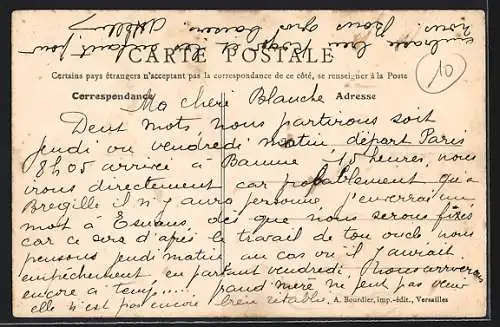 embrasse bien pour
nous. Bons gros baisers
CARTE POSTALE
Certains pays étrangers n'acceptant pas la correspondance de ce côté, se renseigner à la Poste
10
Correspondance Adresse
Ma cheri Blanche
Deut mots nous partirons soit
jeudi ou vendredi matin départ Paris
8h05 arrivée à Baume 15 heures, nous
irons directement car probablement qu'à
Bregille il n'y aura personne, j'enverrai un
mot à Esnans, dès que nous serons fixés
car ce sera d'après le travail de ton oncle nous
pensons jeudi matin au cas où il y aurait
empêchement en partant vendredi. Nous arriverons
encore à temps..... grand mère ne peut pas venir
elle n'est pas encore bien rétablie.
A. Bourdier, imp.-édit., Versailles